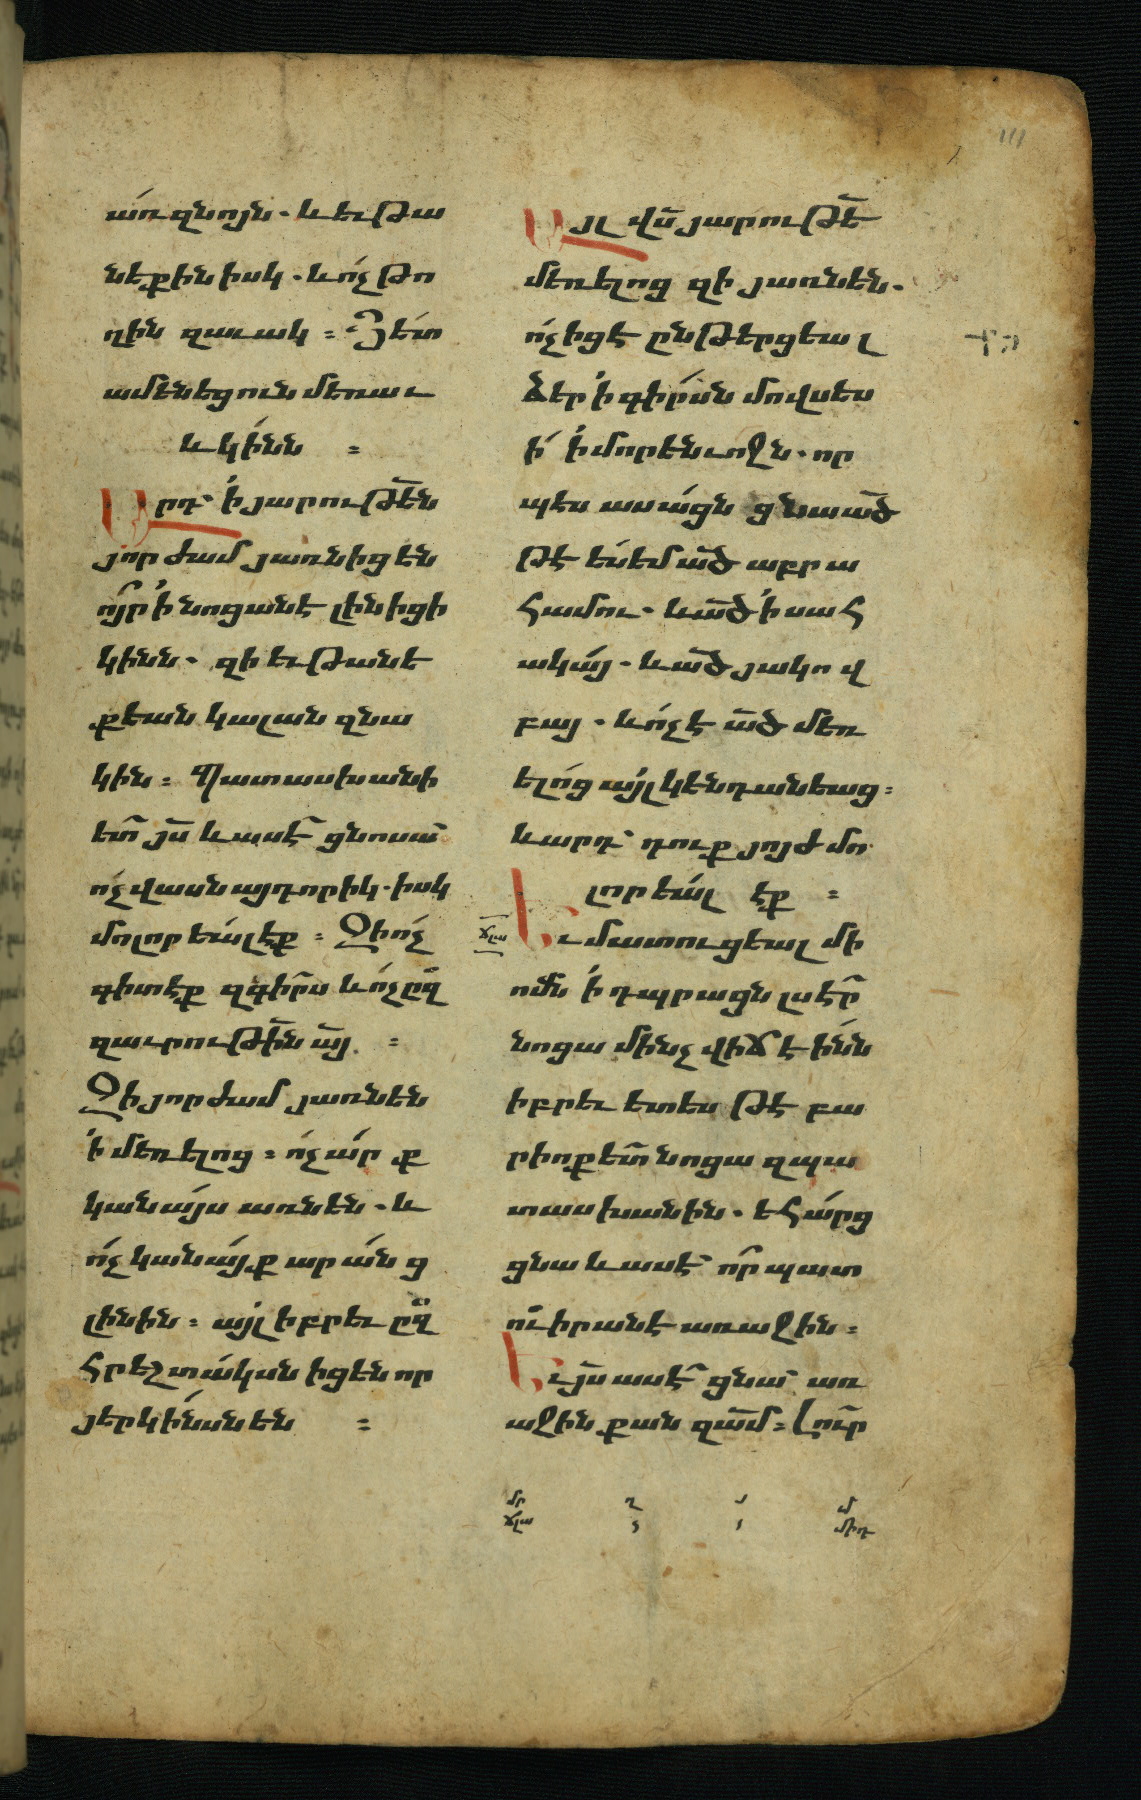 առ զնոյն. և եւթա
նեքին իսկ. և ոչ թո
ղին զաւակ։ Յետ
ամենեցուն մեռաւ
և կինն ։
Արդ՝ ի յարութեն
յորժամ յառնիցեն
ոյր ի նոցանէ լինիցի
կինն. զի եւթանե
քեան կալան զնա
կին։ Պատասխանի
ետ յս և ասէ ցնոսա
ոչ վասն այդորիկ. իսկ
մոլորեալ էք։ Զի ոչ
գիտէք զգիրս և ոչ ըզ
զաւրութին այ ։
Զի յորժամ յառնեն
ի մեռելոց։ ոչ արք
կանայս առնեն. և
ոչ կանայք արանց
լինին։ այլ իբրեւ ըզ
հրեշտակսն իցեն որ
յերկինսն են ։
Այլ վս յարութե
մեռելոց զի յառնեն.
ոչ իցէ ընթերցեալ
ձեր ի գիրսն մովսես
ի ի մորենւոջն. որ
պես ասացն ցնա ած
թէ ես եմ ած աբրա
համու. և ած ի սահ
ակայ. և ած յակով
բայ. և ոչ է ած մեռ
ելոց այլ կենդանեաց։
և արդ՝ դուք յոյժ մո
լորեալ էք ։
ճլա
Եւ մատուցեալ մի
ոմն ի դպրացն լսէր
նոցա մինչ վիճէինն
իբրեւ ետես թէ բա
րիոք ետ նոցա զպա
տասխանին. եհարց
ցնա և ասէ՝ որ պատ
ու իրան է առաջին։
Եւ յս ասէ ցնա՝ առ
աջին քան զամ։ Լուր
մր ղ
ճլա
մ
միդ
111